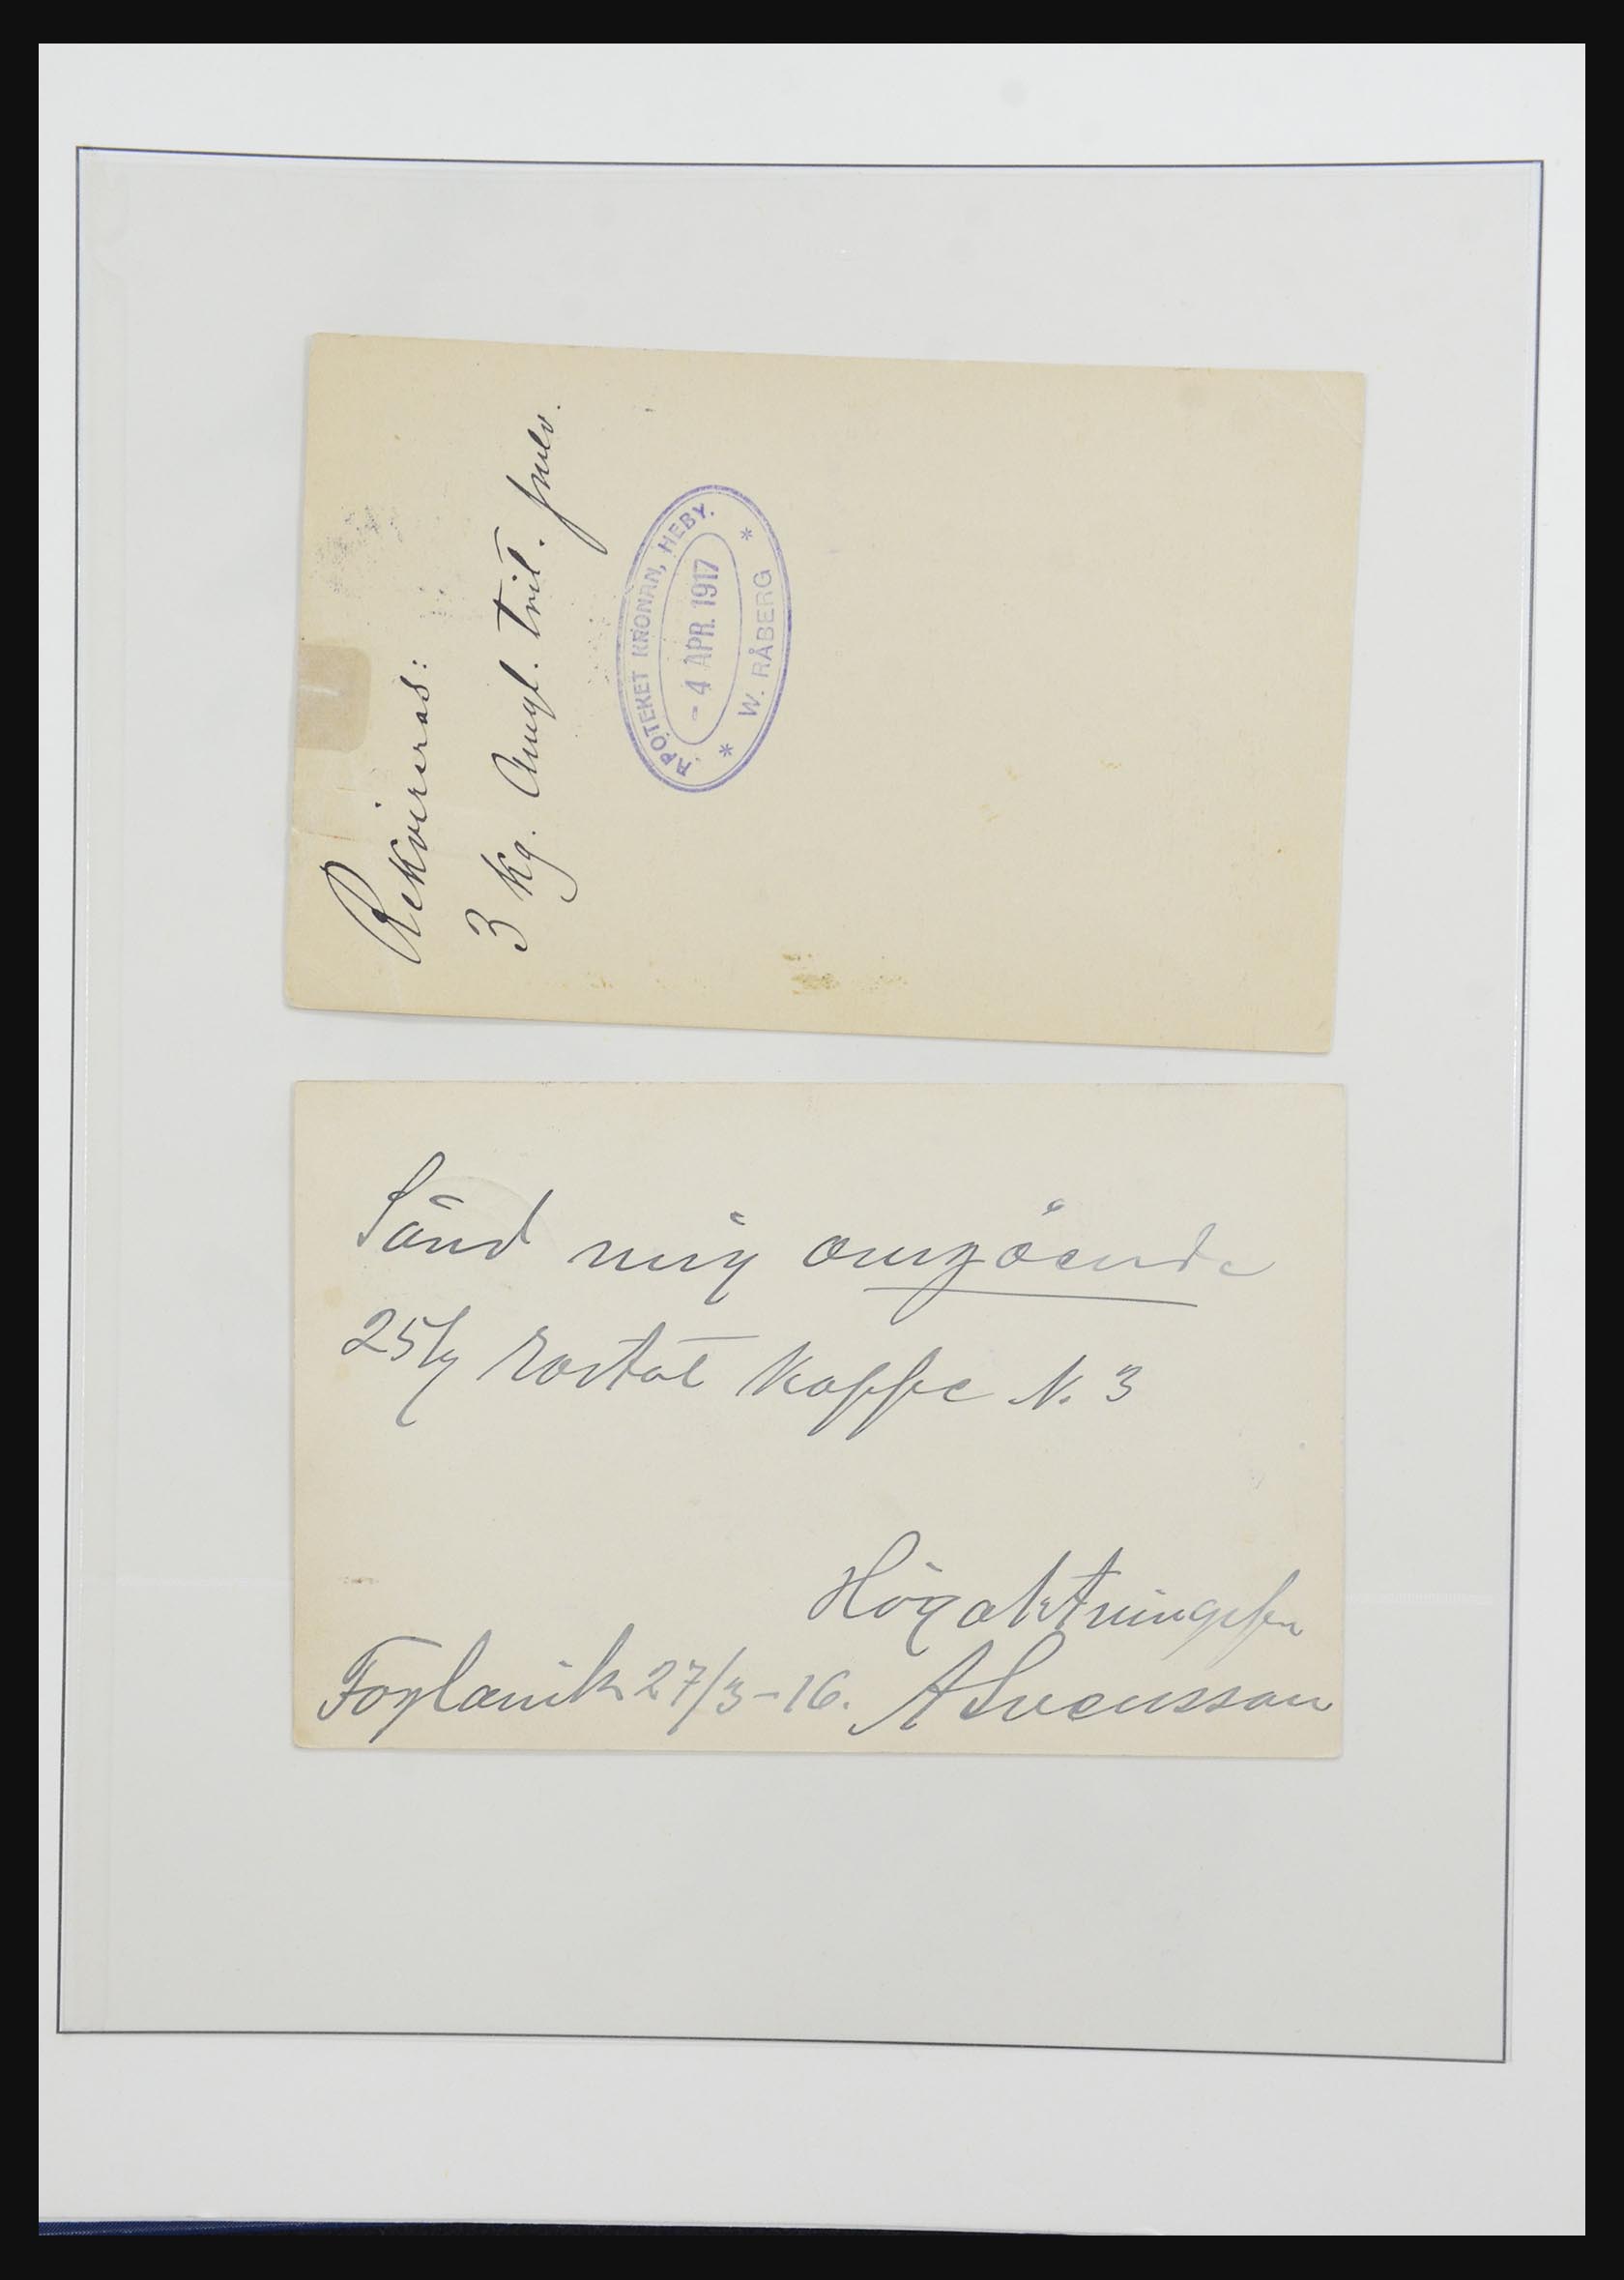 Rekvireras:
3 kg. Amyl. trit. pulv.
APOTEKET KRONAN, HEBY.
- 4 APR. 1917
* W. RÅBERG *
Sänd mig omgående
25 kg rostat Kaffe N. 3
Högaktningsfu
Foglavik 27/3-16. A Svensson